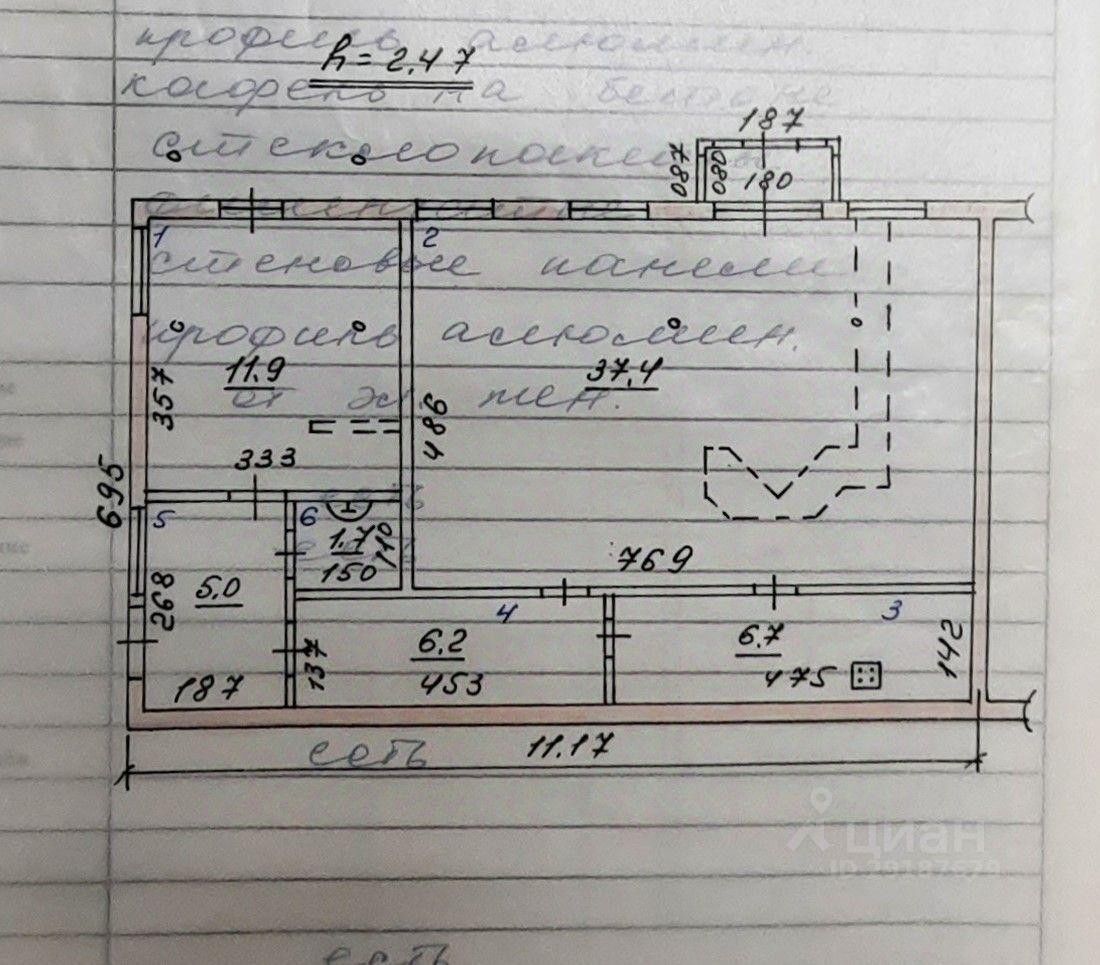 профиль алюмин
h = 2.47
кафель на бетоне
187
стеклопакет
087 080 180
1 2
стеновые панели
профиль алюмин.
11.9 37,4
357 486
333
695
5 6
1.7 110
150 769
268 5.0
4 3
6.2 6.7 142
137 453 475
187
есть 11.17
циан
ID 29187679
есть